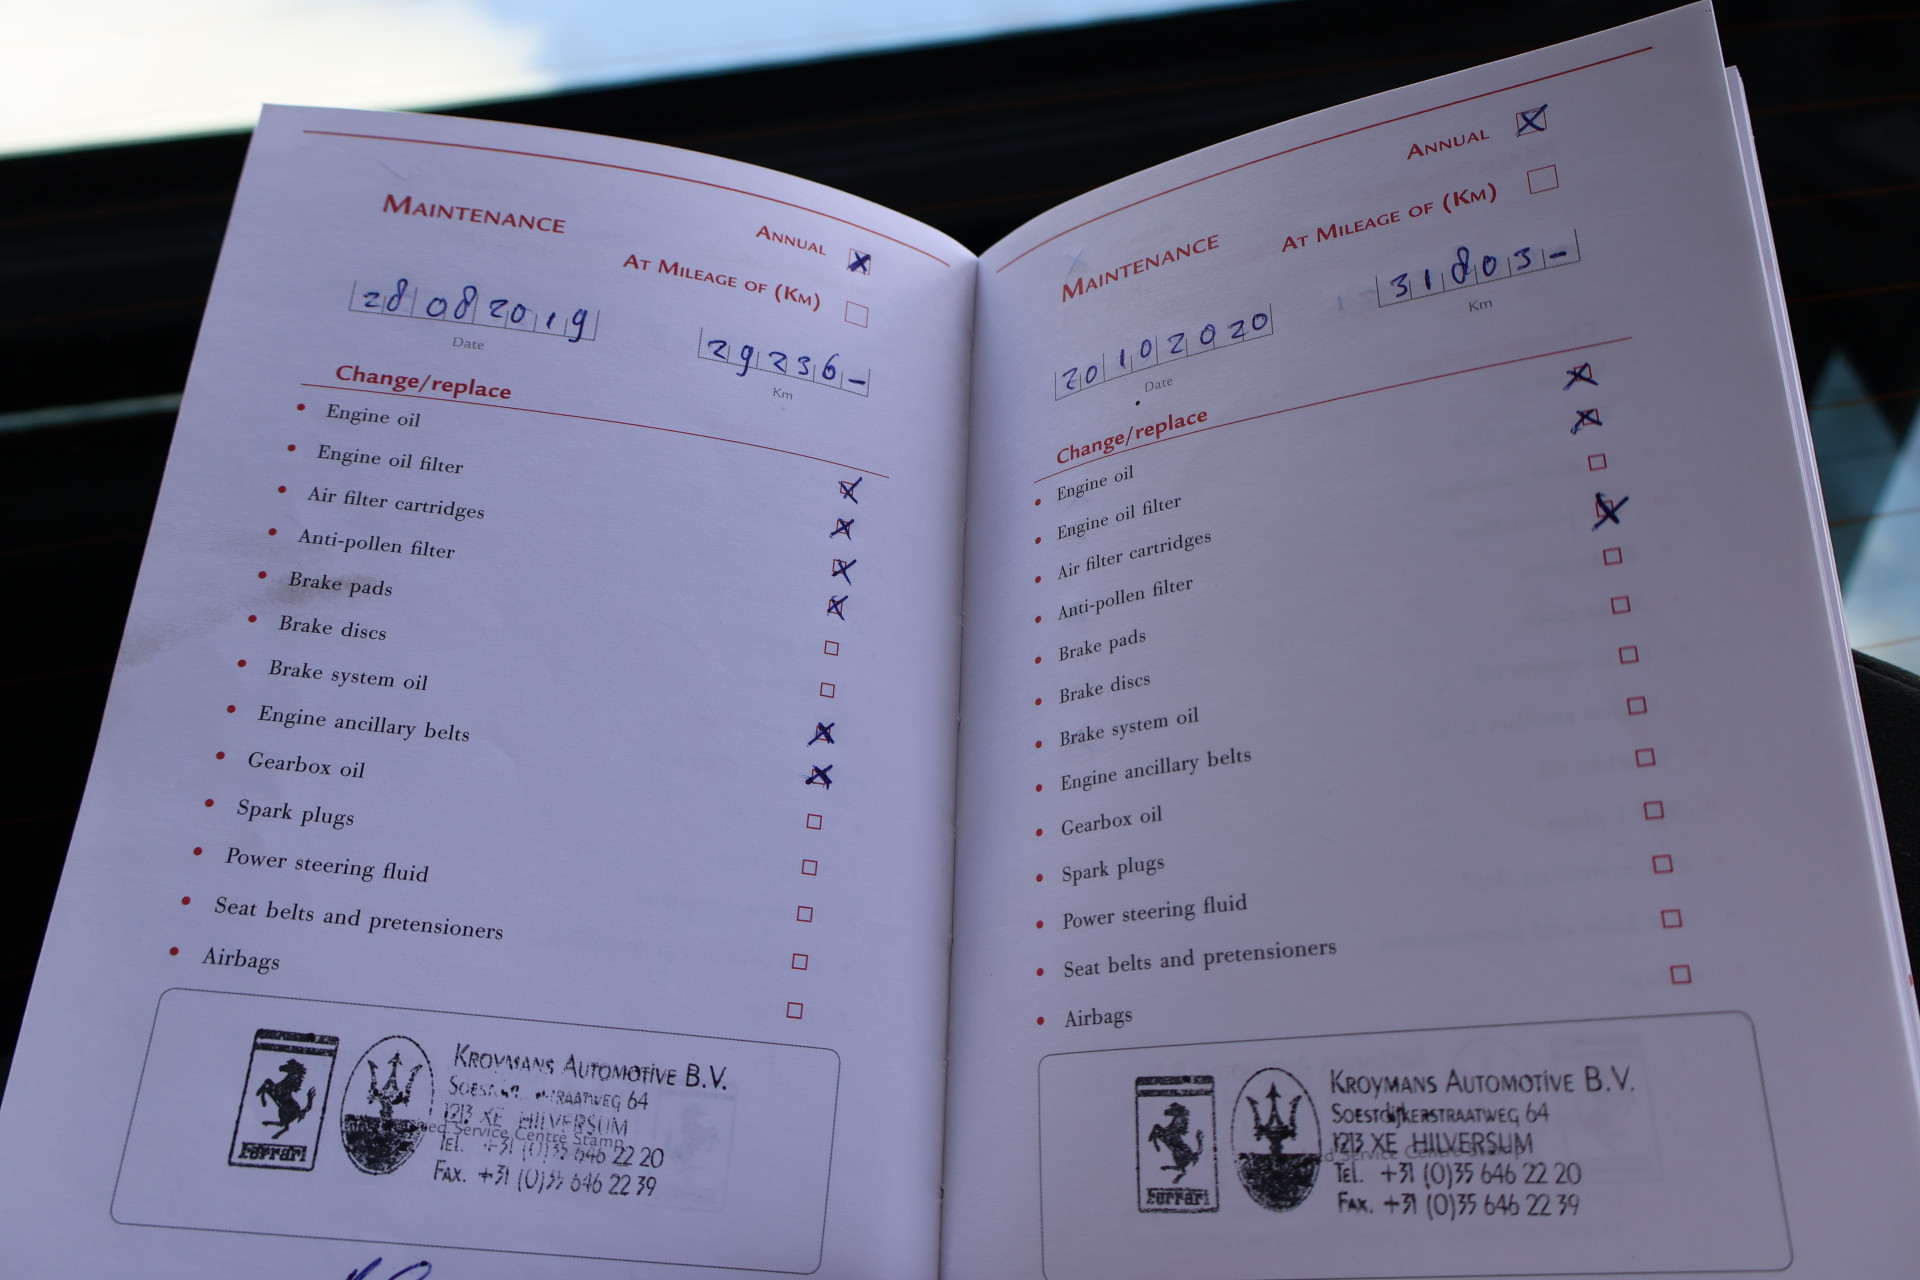 Maintenance
Annual
At Mileage of (Km)
28 08 2019
Date
29236-
Km
Change/replace
Engine oil
Engine oil filter
Air filter cartridges
Anti-pollen filter
Brake pads
Brake discs
Brake system oil
Engine ancillary belts
Gearbox oil
Spark plugs
Power steering fluid
Seat belts and pretensioners
Airbags
Ferrari
Kroymans Automotive B.V.
64
1213 XE HILVERSUM
Service Centre Stamp
Tel. +31 (0)35 646 22 20
Fax. +31 (0)35 646 22 39
Annual
At Mileage of (Km)
Maintenance
31803-
Km
20102020
Date
Change/replace
Engine oil
Engine oil filter
Air filter cartridges
Anti-pollen filter
Brake pads
Brake discs
Brake system oil
Engine ancillary belts
Gearbox oil
Spark plugs
Power steering fluid
Seat belts and pretensioners
Airbags
Ferrari
Kroymans Automotive B.V.
Soestdijkerstraatweg 64
1213 XE HILVERSUM
Service Centre Stamp
Tel. +31 (0)35 646 22 20
Fax. +31 (0)35 646 22 39